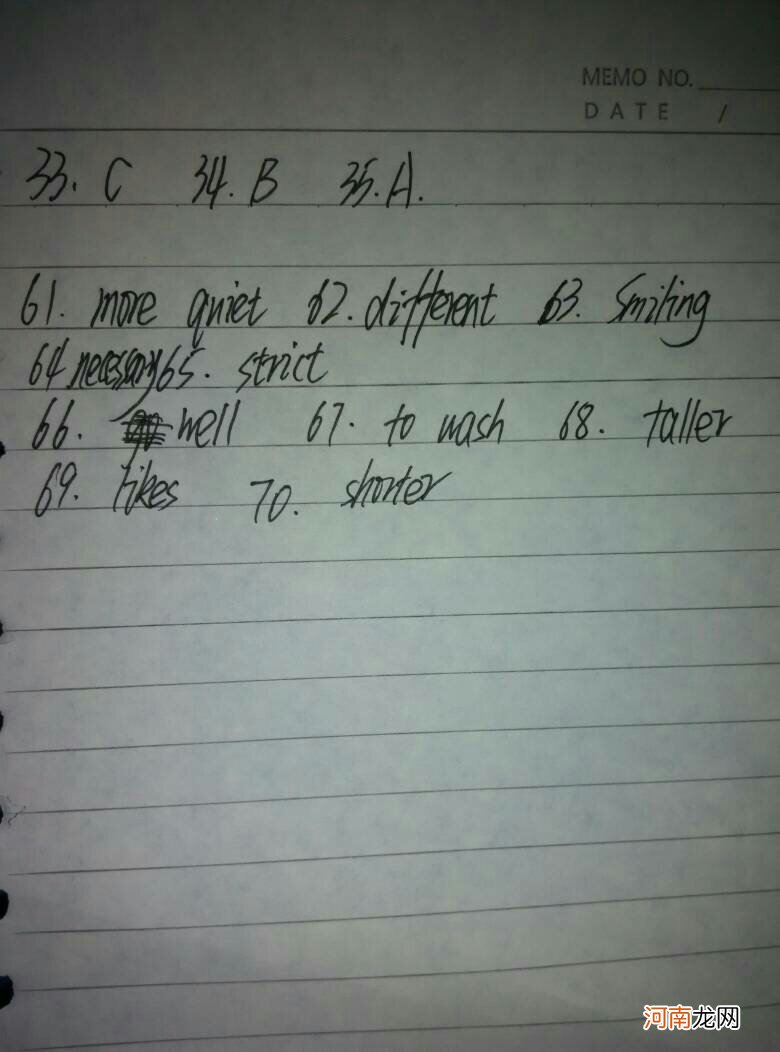 MEMO NO.
DATE /
33. C 34. B 35. A.
61. more quiet 62. different 63. Smiling
64 necessary 65. strict
66. well 67. to wash 68. taller
69. likes 70. shorter
河南龙网